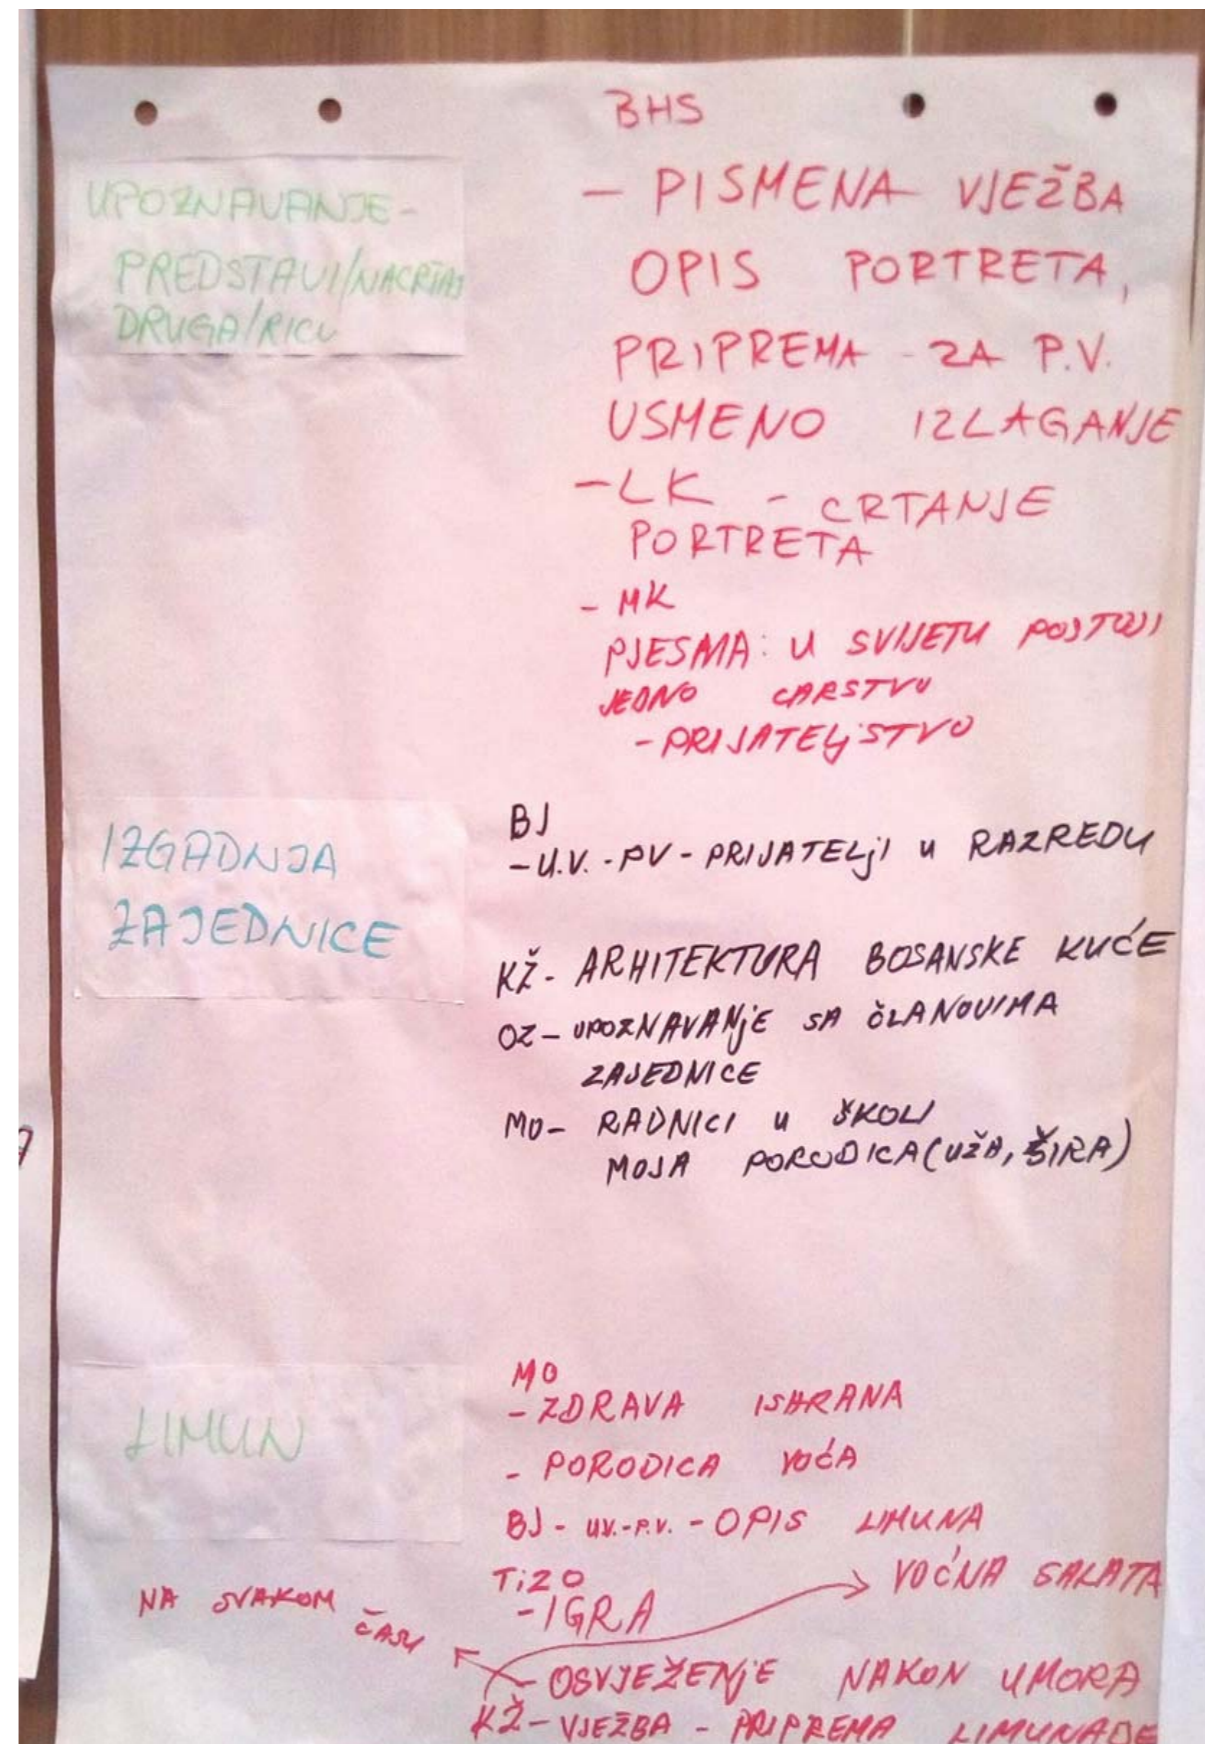 BHS
UPOZNAVANJE-
PREDSTAVI/NACRTAJ
DRUGA/RICU
- PISMENA VJEŽBA
OPIS PORTRETA,
PRIPREMA - ZA P.V.
USMENO IZLAGANJE
- LK - CRTANJE
PORTRETA
- MK
PJESMA: U SVIJETU POSTOJI
JEDNO CARSTVO
- PRIJATELJSTVO
IZGADNJA
ZAJEDNICE
BJ
- U.V. - PV - PRIJATELJI U RAZREDU
KŽ - ARHITEKTURA BOSANSKE KUĆE
OZ - UPOZNAVANJE SA ČLANOVIMA
ZAJEDNICE
MO - RADNICI U ŠKOLI
MOJA PORODICA (UŽA, ŠIRA)
LIMUN
MO
- ZDRAVA ISHRANA
- PORODICA VOĆA
BJ - U.V.-P.V. - OPIS LIMUNA
TiZO
- IGRA
VOĆNA SALATA
NA SVAKOM
ČASU
- OSVJEŽENJE NAKON UMORA
KŽ - VJEŽBA - PRIPREMA LIMUNADE